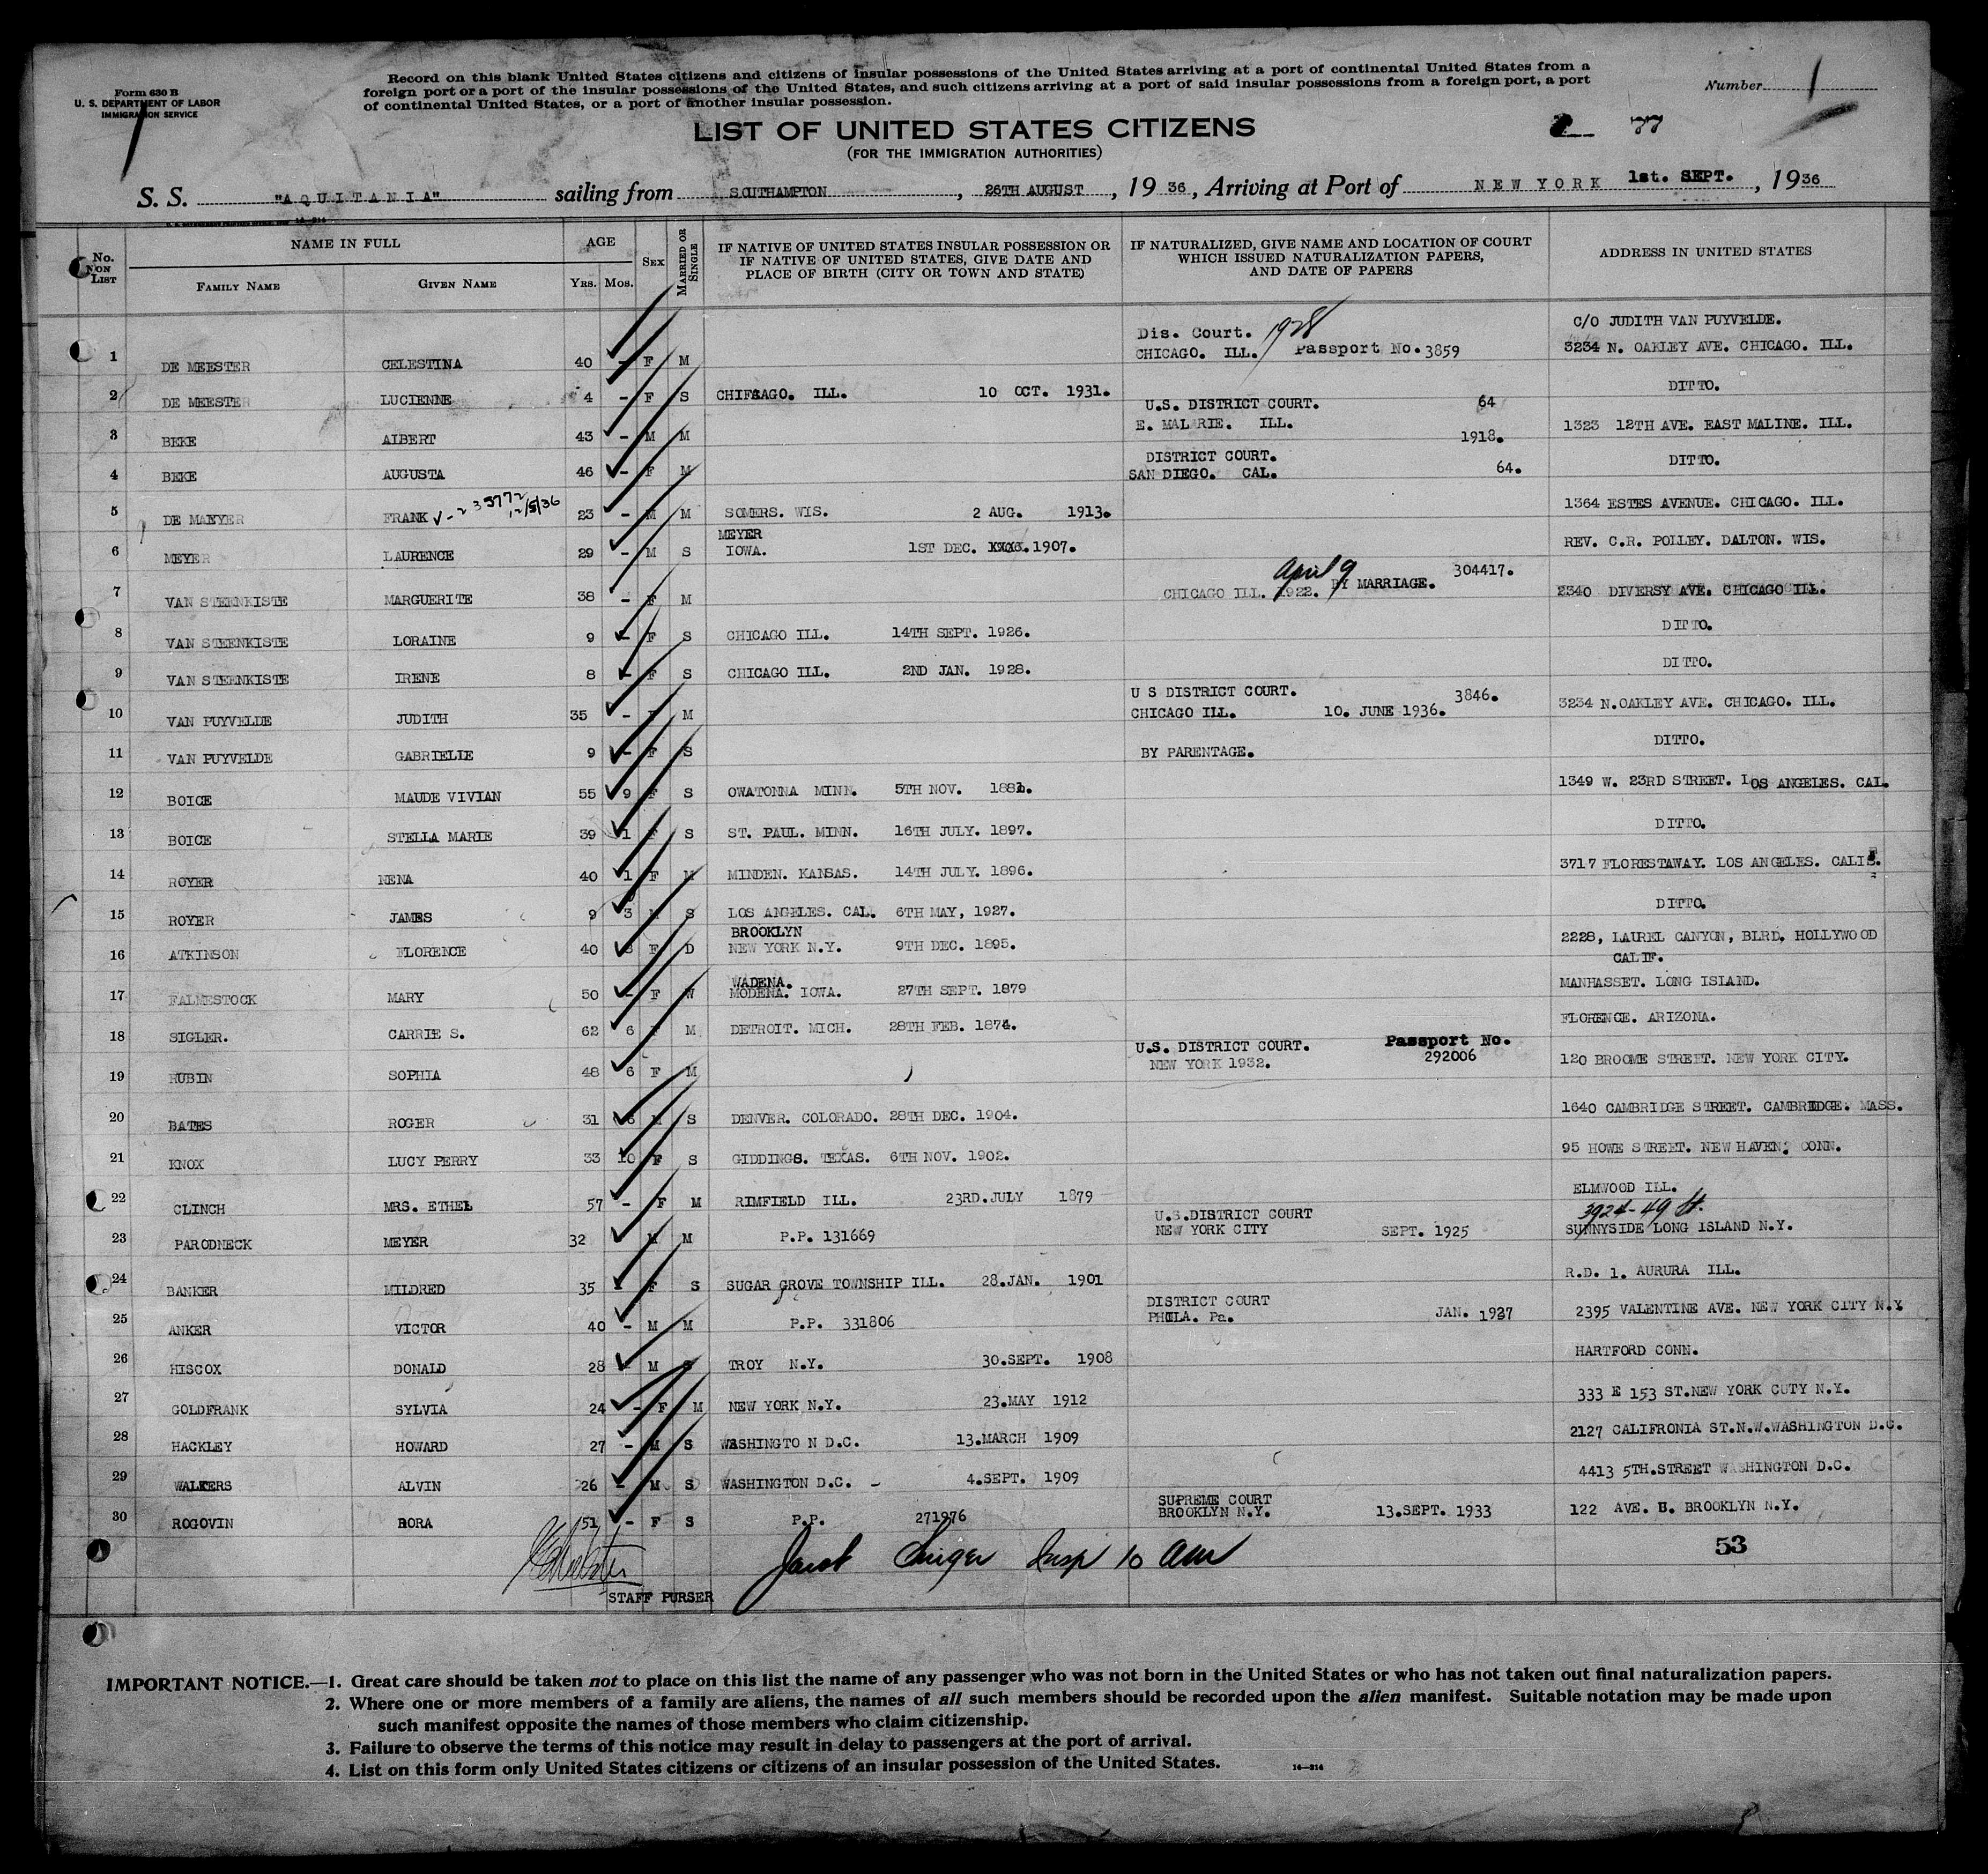 Form 630 B
U. S. DEPARTMENT OF LABOR
IMMIGRATION SERVICE
Record on this blank United States citizens and citizens of insular possessions of the United States arriving at a port of continental United States from a
foreign port or a port of the insular possessions of the United States, and such citizens arriving at a port of said insular possessions from a foreign port, a port
of continental United States, or a port of another insular possession.
Number 1
LIST OF UNITED STATES CITIZENS
(FOR THE IMMIGRATION AUTHORITIES)
S. S. "AQUITANIA" sailing from SOUTHAMPTON, 26TH AUGUST, 1936, Arriving at Port of NEW YORK 1st. SEPT., 1936
No. on List
NAME IN FULL
FAMILY NAME GIVEN NAME
AGE
YRS. MOS.
SEX
MARRIED OR SINGLE
IF NATIVE OF UNITED STATES INSULAR POSSESSION OR
IF NATIVE OF UNITED STATES, GIVE DATE AND
PLACE OF BIRTH (CITY OR TOWN AND STATE)
IF NATURALIZED, GIVE NAME AND LOCATION OF COURT
WHICH ISSUED NATURALIZATION PAPERS,
AND DATE OF PAPERS
ADDRESS IN UNITED STATES
Dis. Court. 1928 C/O JUDITH VAN PUYVELDE.
1 DE MEESTER CELESTINA 40 - F M CHICAGO. ILL. Passport No. 3859 3234 N. OAKLEY AVE. CHICAGO. ILL.
2 DE MEESTER LUCIENNE 4 - F S ILL. 10 OCT. 1931. DITTO.
U.S. DISTRICT COURT. 64
3 BEKE ALBERT 43 - M M E. MALRIE. ILL. 1918. 1323 12TH AVE. EAST MALINE. ILL.
DISTRICT COURT.
4 BEKE AUGUSTA 46 - F M SAN DIEGO. CAL. 64. DITTO.
5 DE MAEYER FRANK 12/5/36 23 - M M SOMERS. WIS. 2 AUG. 1913. 1364 ESTES AVENUE. CHICAGO. ILL.
MEYER
6 MEYER LAURENCE 29 - M S IOWA. 1ST DEC. 1907. REV. C.R. POLLEY. DALTON. WIS.
April 9 304417.
7 VAN STEENKISTE MARGUERITE 38 - F M CHICAGO ILL. 1922. BY MARRIAGE. 2340 DIVERSY AVE. CHICAGO ILL.
8 VAN STEENKISTE LORAINE 9 - F S CHICAGO ILL. 14TH SEPT. 1926. DITTO.
9 VAN STEENKISTE IRENE 8 - F S CHICAGO ILL. 2ND JAN. 1928. DITTO.
U S DISTRICT COURT. 3846.
10 VAN PUYVELDE JUDITH 35 - F M CHICAGO ILL. 10. JUNE 1936. 3234 N.OAKLEY AVE. CHICAGO. ILL.
11 VAN PUYVELDE GABRIELLE 9 - F S BY PARENTAGE. DITTO.
12 BOICE MAUDE VIVIAN 55 9 F S OWATONNA MINN. 5TH NOV. 1349 W. 23RD STREET. LOS ANGELES. CAL.
13 BOICE STELLA MARIE 39 1 F S ST. PAUL. MINN. 16TH JULY. 1897. DITTO.
14 ROYER NENA 40 1 F M MINDEN. KANSAS. 14TH JULY. 1896. 3717 FLORESTAWAY. LOS ANGELES. CALIF.
15 ROYER JAMES 9 3 M S LOS ANGELES. CAL. 6TH MAY, 1927. DITTO.
BROOKLYN
16 ATKINSON FLORENCE 40 8 F D NEW YORK N.Y. 9TH DEC. 1895. 2228, LAUREL CANYON, BLRD, HOLLYWOOD
CALIF.
WADENA.
17 FALNESTOCK MARY 50 - F W MODENA. IOWA. 27TH SEPT. 1879 MANHASSET. LONG ISLAND.
18 SIGLER. CARRIE S. 62 6 F M DETROIT. MICH. 28TH FEB. 1874. FLORENCE. ARIZONA.
U.S. DISTRICT COURT. Passport No.
19 RUBIN SOPHIA 48 6 F M NEW YORK 1932. 292006 120 BROOME STREET. NEW YORK CITY.
20 BATES ROGER 31 8 M S DENVER. COLORADO. 28TH DEC. 1904. 1640 CAMBRIDGE STREET. CAMBRIDGE. MASS.
21 KNOX LUCY PERRY 33 10 F S GIDDINGS. TEXAS. 6TH NOV. 1902. 95 HOWE STREET. NEW HAVEN. CONN.
22 CLINCH MRS. ETHEL 57 - F M RIMFIELD ILL. 23RD.JULY 1879 ELMWOOD ILL.
U.S.DISTRICT COURT 3924-49 St.
23 PARODNECK MEYER 32 M M P.P. 131669 NEW YORK CITY SEPT. 1925 SUNNYSIDE LONG ISLAND N.Y.
24 BANKER MILDRED 35 - F S SUGAR GROVE TOWNSHIP ILL. 28.JAN. 1901 R.D. 1. AURURA ILL.
DISTRICT COURT
25 ANKER VICTOR 40 - M M P.P. 331806 PHILA. Pa. JAN. 1927 2395 VALENTINE AVE. NEW YORK CITY N.Y
26 HISCOX DONALD 28 - M S TROY N.Y. 30.SEPT. 1908 HARTFORD CONN.
27 GOLDFRANK SYLVIA 24 - F M NEW YORK N.Y. 23.MAY 1912 333 E 153 ST.NEW YORK CUTY N.Y.
28 HACKLEY HOWARD 27 - M S WASHINGTO N D.C. 13.MARCH 1909 2127 CALIFRONIA ST.N.W.WASHINGTON D.C.
29 WALKERS ALVIN 26 - M S WASHINGTON D.C. - 4.SEPT. 1909 4413 5TH.STREET WASHINGTON D.C.
SUPREME COURT
30 ROGOVIN BORA 51 - F S P.P. 271976 BROOKLYN N.Y. 13.SEPT. 1933 122 AVE. U. BROOKLYN N.Y.
Jacob Singer Insp 10 am 53
STAFF PURSER
IMPORTANT NOTICE.—1. Great care should be taken not to place on this list the name of any passenger who was not born in the United States or who has not taken out final naturalization papers.
2. Where one or more members of a family are aliens, the names of all such members should be recorded upon the alien manifest. Suitable notation may be made upon
such manifest opposite the names of those members who claim citizenship.
3. Failure to observe the terms of this notice may result in delay to passengers at the port of arrival.
4. List on this form only United States citizens or citizens of an insular possession of the United States.
14—314